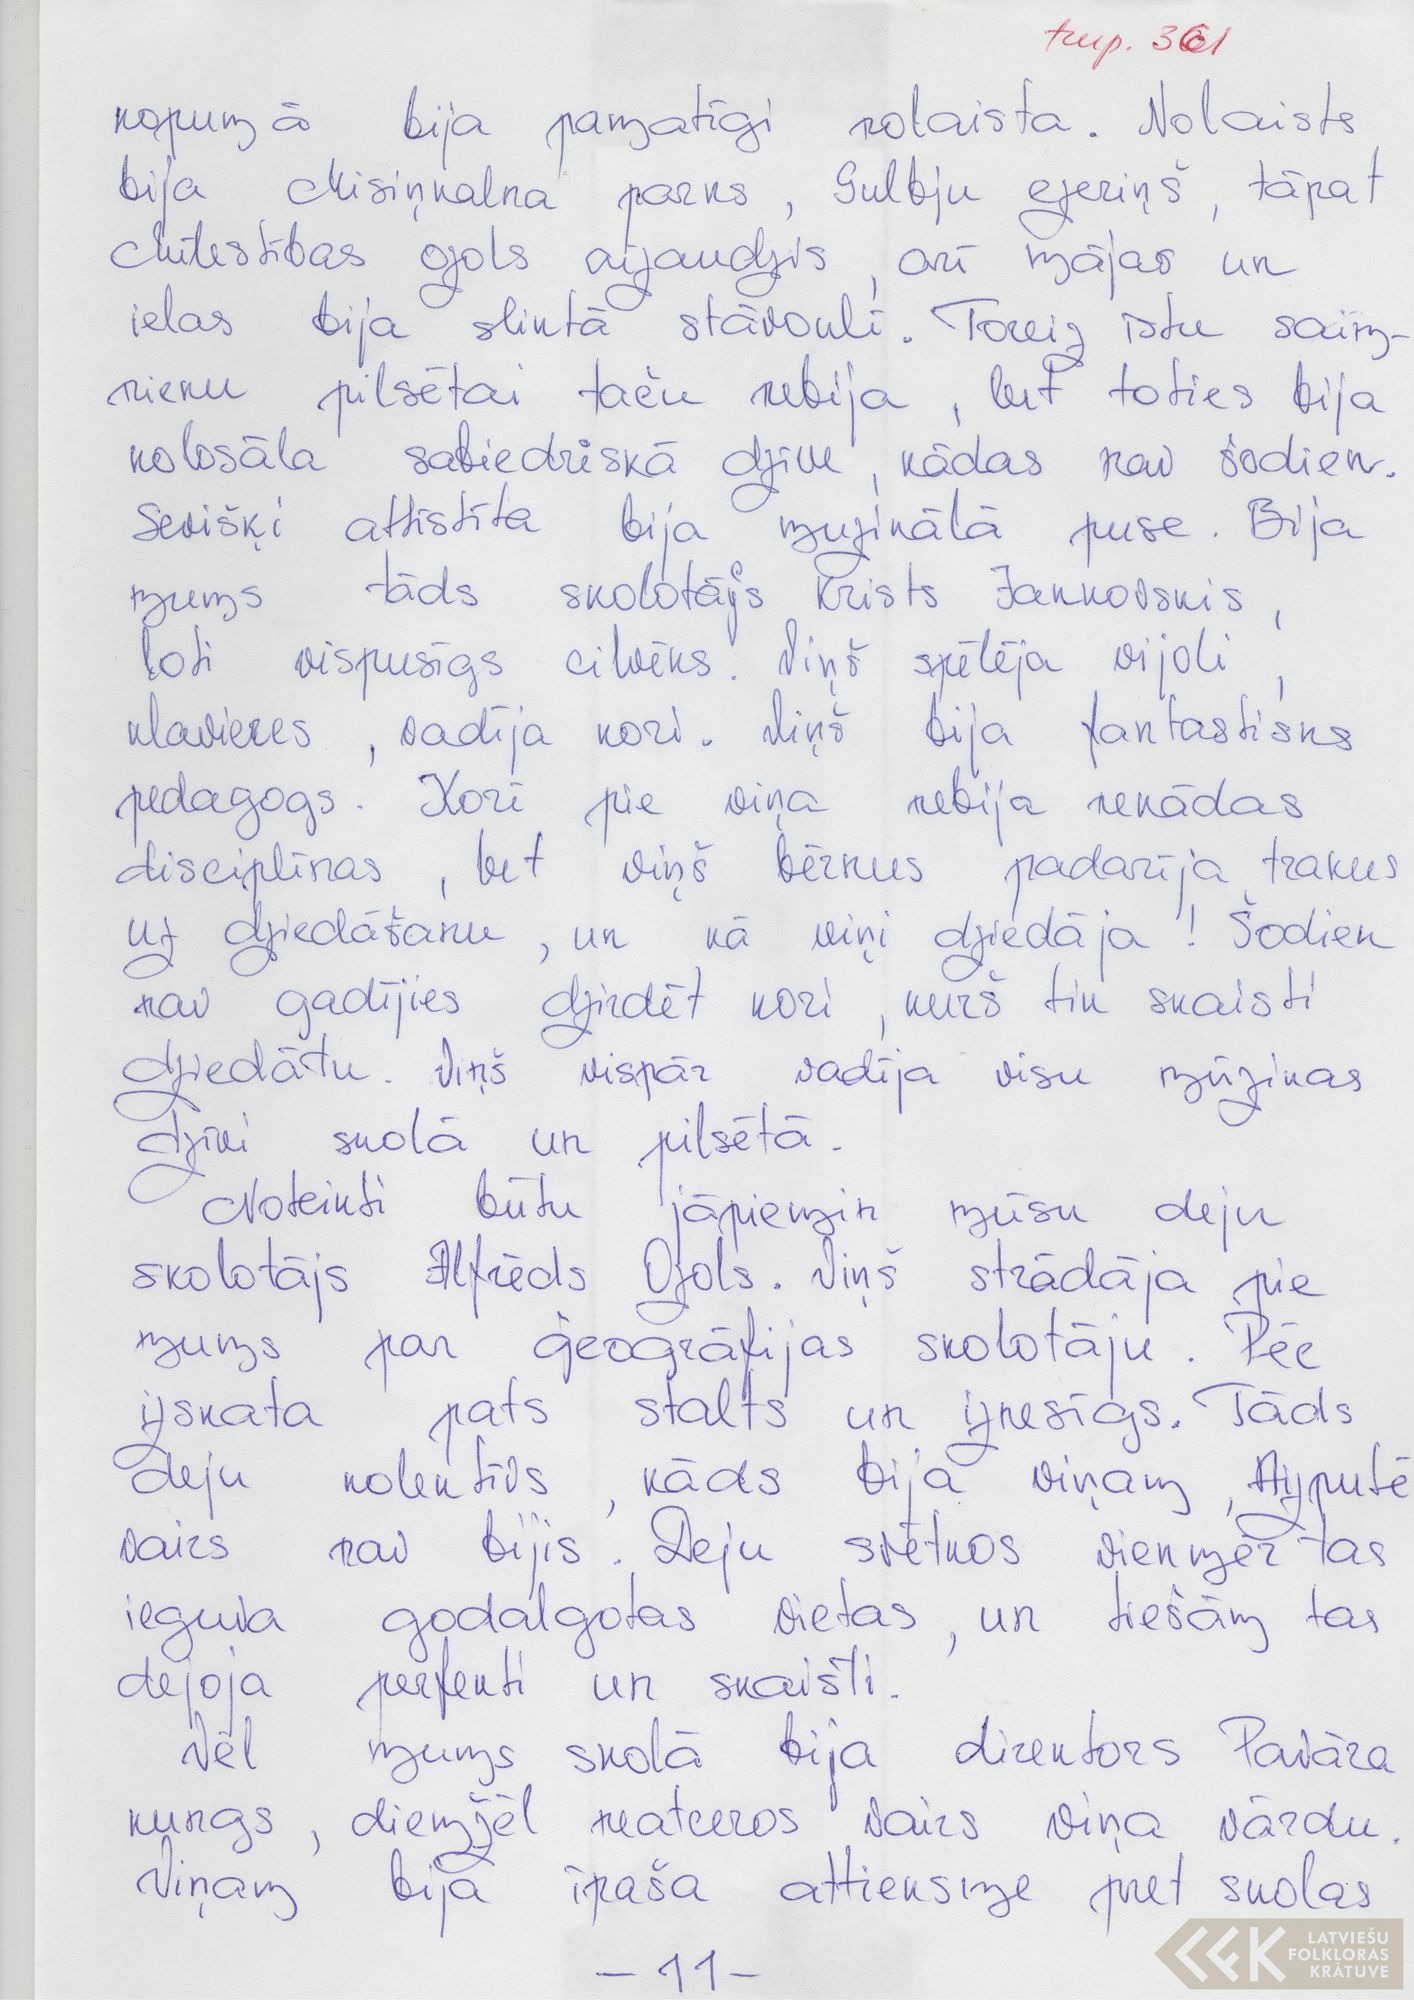 turp. 361
kopumā bija pamatīgi nolaista. Nolaists
bija Misiņkalna parks, Gulbju ezeriņš, tāpat
Mīlestības ozols aizaudzis, arī mājas un
ielas bija sliktā stāvoklī. Toreiz īstu saim-
nieku pilsētai taču nebija, bet toties bija
kolosāla sabiedriskā dzīve, kādas nav šodien.
Sevišķi attīstīta bija muzikālā puse. Bija
mums tāds skolotājs Krists Jankovskis,
ļoti vispusīgs cilvēks. Viņš spēlēja vijoli,
klavieres, vadīja kori. Viņš bija fantastisks
pedagogs. Korī pie viņa nebija nekādas
disciplīnas, bet viņš bērnus padarīja trakus
uz dziedāšanu, un kā viņi dziedāja! Šodien
nav gadījies dzirdēt kori, kurš tik skaisti
dziedātu. Viņš vispār vadīja visu mūzikas
dzīvi skolā un pilsētā.
Noteikti būtu jāpiemin mūsu deju
skolotājs Alfrēds Ozols. Viņš strādāja pie
mums par ģeogrāfijas skolotāju. Pēc
izskata pats stalts un iznesīgs. Tāds
deju kolektīvs, kāds bija viņam, Aizputē
vairs nav bijis. Deju svētkos vienmēr tas
ieguva godalgotas vietas, un tiešām tas
dejoja perfekti un skaisti.
Vēl mums skolā bija direktors Pavāra
kungs, diemžēl neatceros vairs viņa vārdu.
Viņam bija īpaša attieksme pret skolas
- 11 -
LATVIEŠU
FOLKLORAS
KRĀTUVE